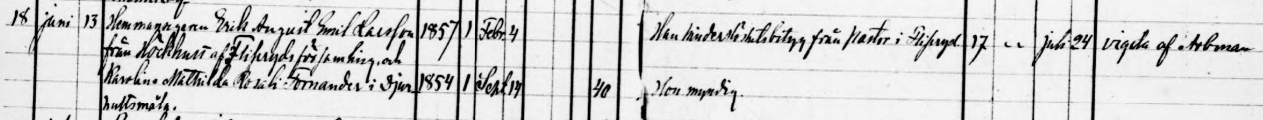 18 juni 13 Hemmansegaren Erik August Emil Larsson 1857 1 Febr. 4 Hans hinderslöshetsbetyg från Pastor i Fliseryd 17 " juli 24 vigda af Arbman
från Kockhult af Fliseryds församling, och
Karolina Mathilda Rosali Fornander i Djur- 1854 1 Sept. 14 40 Hon myndig.
hultsmåla.